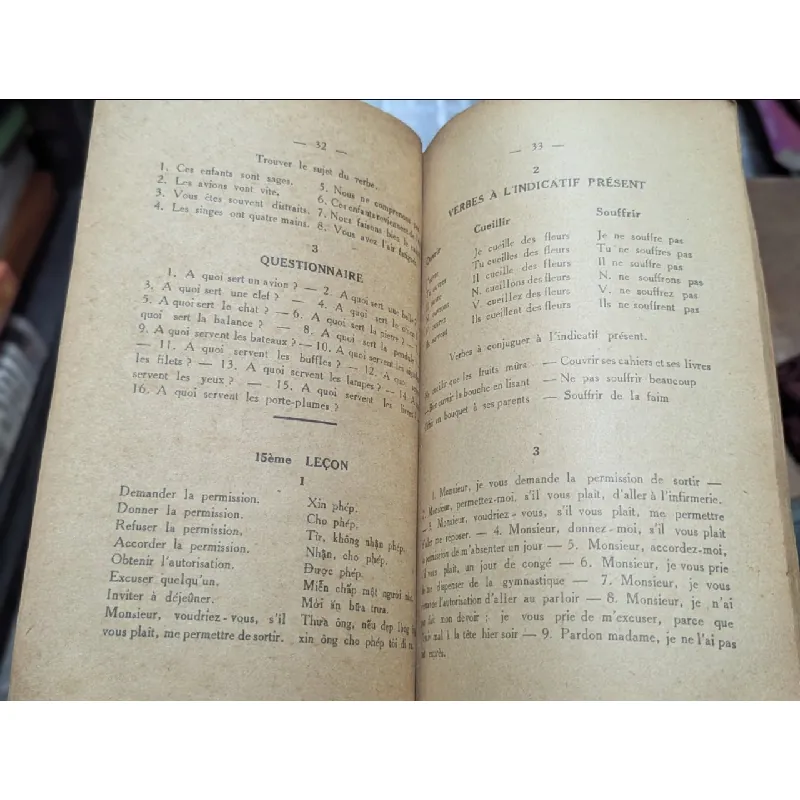 — 32 —
Trouver le sujet du verbe.
1. Ces enfants sont sages. 5. Nous ne comprenons
2. Les avions vont vite. 6. Ces enfants reviennent de
3. Vous êtes souvent distraits. 7. Nous faisons bien le
4. Les singes ont quatre mains. 8. Vous avez l'air fatigués
3
QUESTIONNAIRE
1. A quoi sert un avion ? — 2. A quoi sert une
3. A quoi sert une clef ? — 4. A quoi sert le
5. A quoi sert le chat ? — 6. A quoi sert la pierre ? —
quoi sert la balance ? — 8. A quoi sert la pendule
9. A quoi servent les bateaux ? — 10. A quoi servent les
— 11. A quoi servent les buffles ? — 12. A quoi
les filets ? — 13. A quoi servent les lampes ? — 14. A
servent les yeux ? — 15. A quoi servent les
16. A quoi servent les porte-plumes ?
15ème LEÇON
1
Demander la permission. Xin phép.
Donner la permission. Cho phép.
Refuser la permission. Từ, không nhận phép.
Accorder la permission. Nhận, cho phép.
Obtenir l'autorisation. Được phép.
Excuser quelqu'un. Miễn chấp một người
Inviter à déjeûner. Mời ăn bữa trưa.
Monsieur, voudriez-vous, s'il Thưa ông, nếu đẹp lòng
vous plait, me permettre de sortir. xin ông cho phép tôi đi ra.
— 33 —
2
VERBES À L'INDICATIF PRÉSENT
Cueillir Souffrir
Je cueille des fleurs Je ne souffre pas
Tu cueilles des fleurs Tu ne souffres pas
Il cueille des fleurs Il ne souffre pas
N. cueillons des fleurs N. ne souffrons pas
V. cueillez des fleurs V. ne souffrez pas
Ils cueillent des fleurs Ils ne souffrent pas
Verbes à conjuguer à l'indicatif présent.
que les fruits mûrs — Couvrir ses cahiers et ses livres
ouvrir la bouche en lisant — Ne pas souffrir beaucoup
un bouquet à ses parents — Souffrir de la faim
3
1. Monsieur, je vous demande la permission de sortir —
2. Monsieur, permettez-moi, s'il vous plait, d'aller à l'infirmerie.
— 3. Monsieur, voudriez-vous, s'il vous plait, me permettre
d'aller me reposer. — 4. Monsieur, donnez-moi, s'il vous plait
la permission de m'absenter un jour — 5. Monsieur, accordez-moi,
s'il vous plait, un jour de congé — 6. Monsieur, je vous prie
de me dispenser de la gymnastique — 7. Monsieur, je vous
demande l'autorisation d'aller au parloir — 8. Monsieur, je n'ai
pas fait mon devoir ; je vous prie de m'excuser, parce que
j'avais mal à la tête hier soir — 9. Pardon madame, je ne l'ai pas
fait exprès.